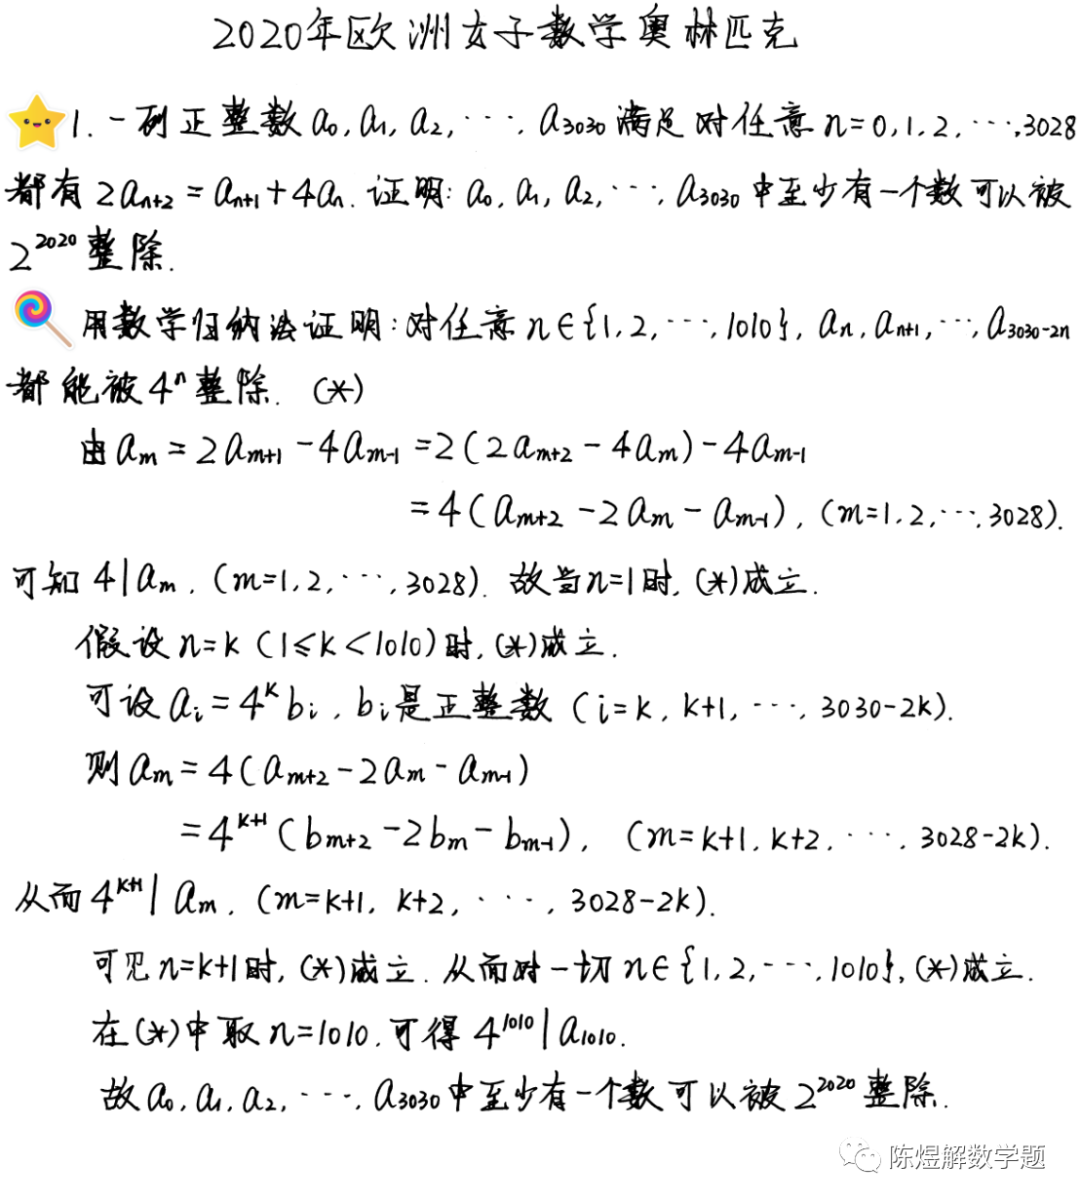 2020年欧洲女子数学奥林匹克
1. 一列正整数 a₀, a₁, a₂, ···, a₃₀₃₀ 满足对任意 n=0,1,2,···,3028
都有 2aₙ₊₂ = aₙ₊₁ + 4aₙ. 证明: a₀, a₁, a₂, ···, a₃₀₃₀ 中至少有一个数可以被
2²⁰²⁰ 整除.
用数学归纳法证明: 对任意 n∈{1,2,···,1010}, aₙ, aₙ₊₁, ···, a₃₀₃₀₋₂ₙ
都能被 4ⁿ 整除. (*)
由 aₘ = 2aₘ₊₁ - 4aₘ₋₁ = 2(2aₘ₊₂ - 4aₘ) - 4aₘ₋₁
= 4(aₘ₊₂ - 2aₘ - aₘ₋₁), (m=1,2,···,3028).
可知 4|aₘ, (m=1,2,···,3028). 故当 n=1 时, (*)成立.
假设 n=k (1≤k<1010) 时, (*)成立.
可设 aᵢ = 4ᵏbᵢ, bᵢ 是正整数 (i=k, k+1, ···, 3030-2k).
则 aₘ = 4(aₘ₊₂ - 2aₘ - aₘ₋₁)
= 4ᵏ⁺¹(bₘ₊₂ - 2bₘ - bₘ₋₁), (m=k+1, k+2, ···, 3028-2k).
从而 4ᵏ⁺¹| aₘ, (m=k+1, k+2, ···, 3028-2k).
可见 n=k+1 时, (*)成立. 从而对一切 n∈{1,2,···,1010}, (*)成立.
在(*)中取 n=1010, 可得 4¹⁰¹⁰|a₁₀₁₀.
故 a₀, a₁, a₂, ···, a₃₀₃₀ 中至少有一个数可以被 2²⁰²⁰ 整除.
陈煜解数学题